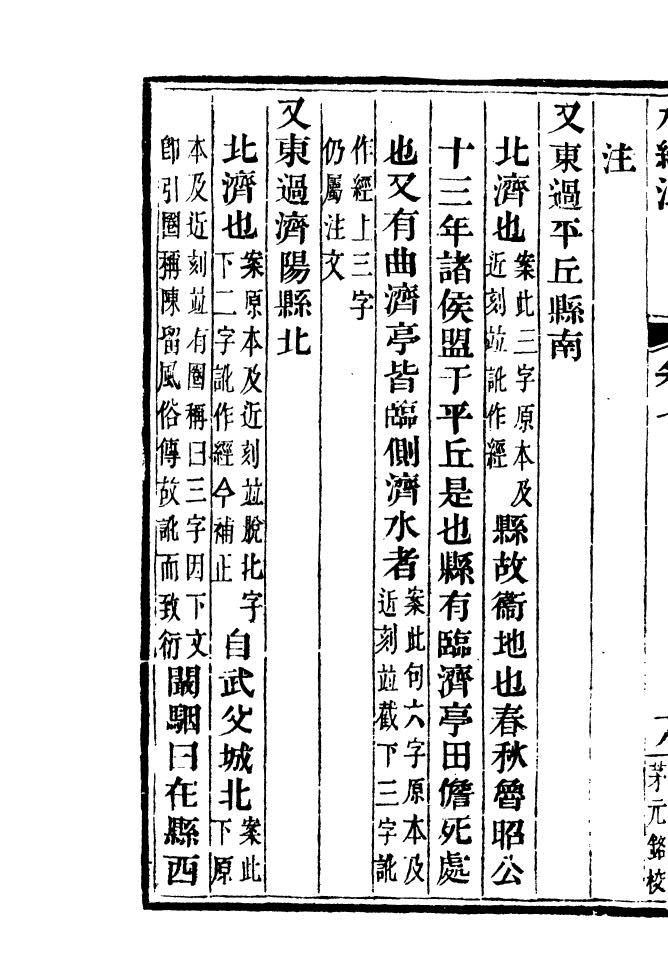 茅元銘校
注
又東過平丘縣南
北濟也案此三字原本及近刻竝訛作經縣故衞地也春秋魯昭公
十三年諸侯盟于平丘是也縣有臨濟亭田儋死處
也又有曲濟亭皆臨側濟水者案此句六字原本及近刻竝截下三字訛
作經上三字仍屬注文
又東過濟陽縣北
北濟也案原本及近刻竝脫北字下二字訛作經今補正自武父城北案此下原
本及近刻竝有圈稱曰三字因下文卽引圈稱陳留風俗傳故訛而致衍闞駰曰在縣西